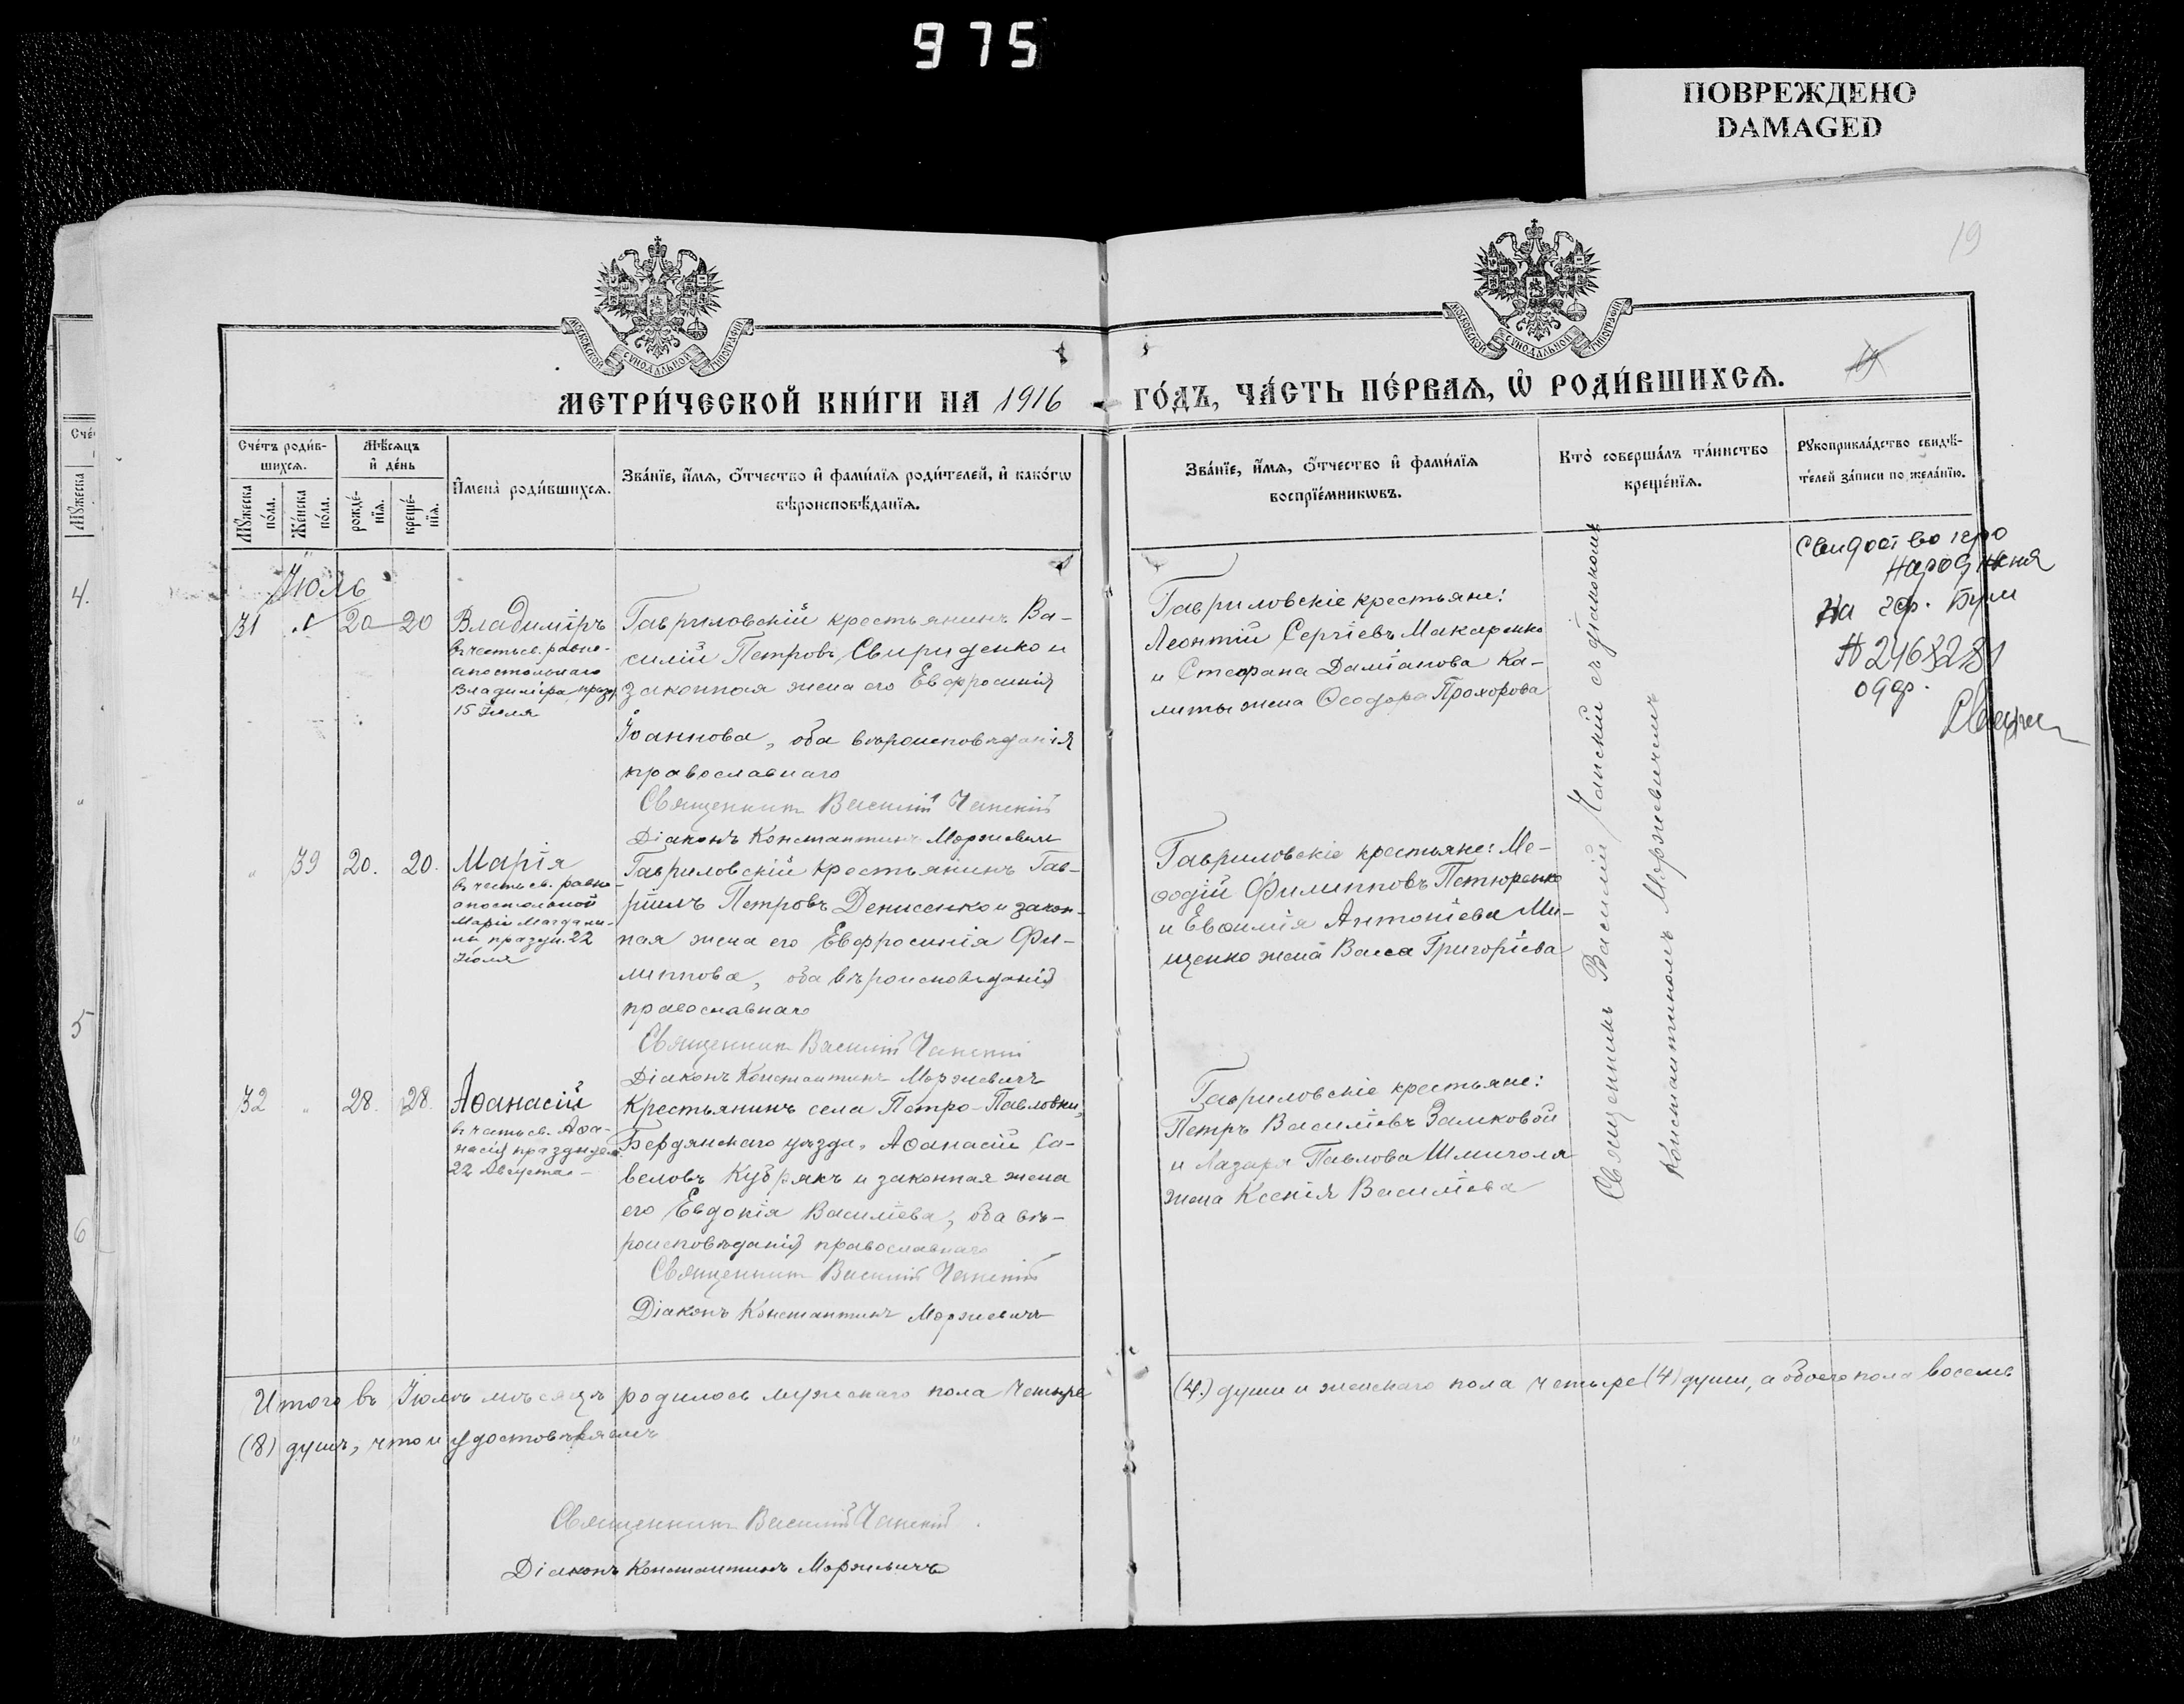 975
ПОВРЕЖДЕНО
DAMAGED
19
МОСКОВСКОЙ СѴНОДАЛЬНОЙ ТИПОГРАФІИ
МОСКОВСКОЙ СѴНОДАЛЬНОЙ ТИПОГРАФІИ
МЕТРИ́ЧЕСКОЙ КНИ́ГИ НА 1916
ГО́ДЪ, ЧА́СТЬ ПЕ́РВАѦ, Ѡ РОДИ́ВШИХСѦ.
19
Сче́тъ роди́в-
шихсѧ.
Мꙋжеска
по́ла.
Же́нска
по́ла.
Мѣ́сѧцъ
и де́нь
рожде́-
нїѧ.
креще́-
нїѧ.
Имена̀ роди́вшихсѧ.
Зва́нїе, и́мѧ, о́тчество и фами́лїѧ роди́телей, и како́гѡ
вѣроисповѣ́данїѧ.
Зва́нїе, и́мѧ, о́тчество и фами́лїѧ
воспрїе́мникѡвъ.
Кто̀ соверша́лъ та́инство
креще́нїѧ.
Рꙋкоприкла́дство свидѣ́-
телей за́писи по жела́нїю.
Іюль
31 " 20 20 Владиміръ
въ честь св. равно-
апостольнаго
Владиміра, празд.
15 Іюля
Гавриловскій крестьянинъ Ва-
силій Петровъ Свириденко и
законная жена его Евфросинія
Іоаннова, оба вѣроисповѣданія
православнаго
Священникъ Василій Чапскій
Діаконъ Константинъ Моржевичъ
Гавриловскіе крестьяне:
Леонтій Сергіевъ Макаренко
и Стефана Даміанова Ка-
литы жена Ѳеодора Прохорова
Свидоство про
народження
На гер.
№ 2468281
одер.
" 39 20. 20. Марія
въ честь св. равно-
апостольной
Маріи Магдали-
ны праздн. 22
Іюля
Гавриловскій крестьянинъ Гав-
ріилъ Петровъ Денисенко и закон-
ная жена его Евфросинія Фи-
липпова, оба вѣроисповѣданія
православнаго
Священникъ Василій Чапскій
Діаконъ Константинъ Моржевичъ
Гавриловскіе крестьяне: Ме-
ѳодій Филипповъ Петюренко
и Евѳимія Антоніева Ми-
щенко жена Васса Григоріева
32 " 28. 28. Аѳанасій
въ честь св. Аѳа-
насія празднуем.
22 Августа
Крестьянинъ села Петро-Павловки,
Бердянскаго уѣзда, Аѳанасій Са-
веловъ Кудрякъ и законная жена
его Евдокія Василіева, оба вѣ-
роисповѣданія православнаго
Священникъ Василій Чапскій
Діаконъ Константинъ Моржевичъ
Гавриловскіе крестьяне:
Петръ Василіевъ Замковой
и Лазаря Павлова Шмиголя
жена Ксенія Василіева
Священникъ Василій Чапскій съ діакономъ
Константиномъ Моржевичемъ
Итого въ Іюлѣ мѣсяцѣ родилось мужскаго пола четыре
(4) души и женскаго пола четыре (4) души, а обоего пола восемь
(8) душъ, что и удостовѣряемъ
Священникъ Василій Чапскій.
Діаконъ Константинъ Моржевичъ
4.
5
6